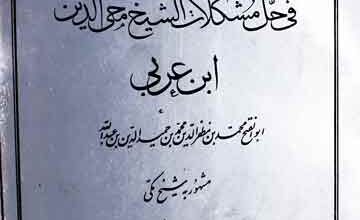 فی حل مشکلات الشیخ محی الدین
ابن عربی
ابوالفتح محمد بن مظفرالدین محمد بن حمیدالدین بن عبدالله
مشهور به شیخ مکی